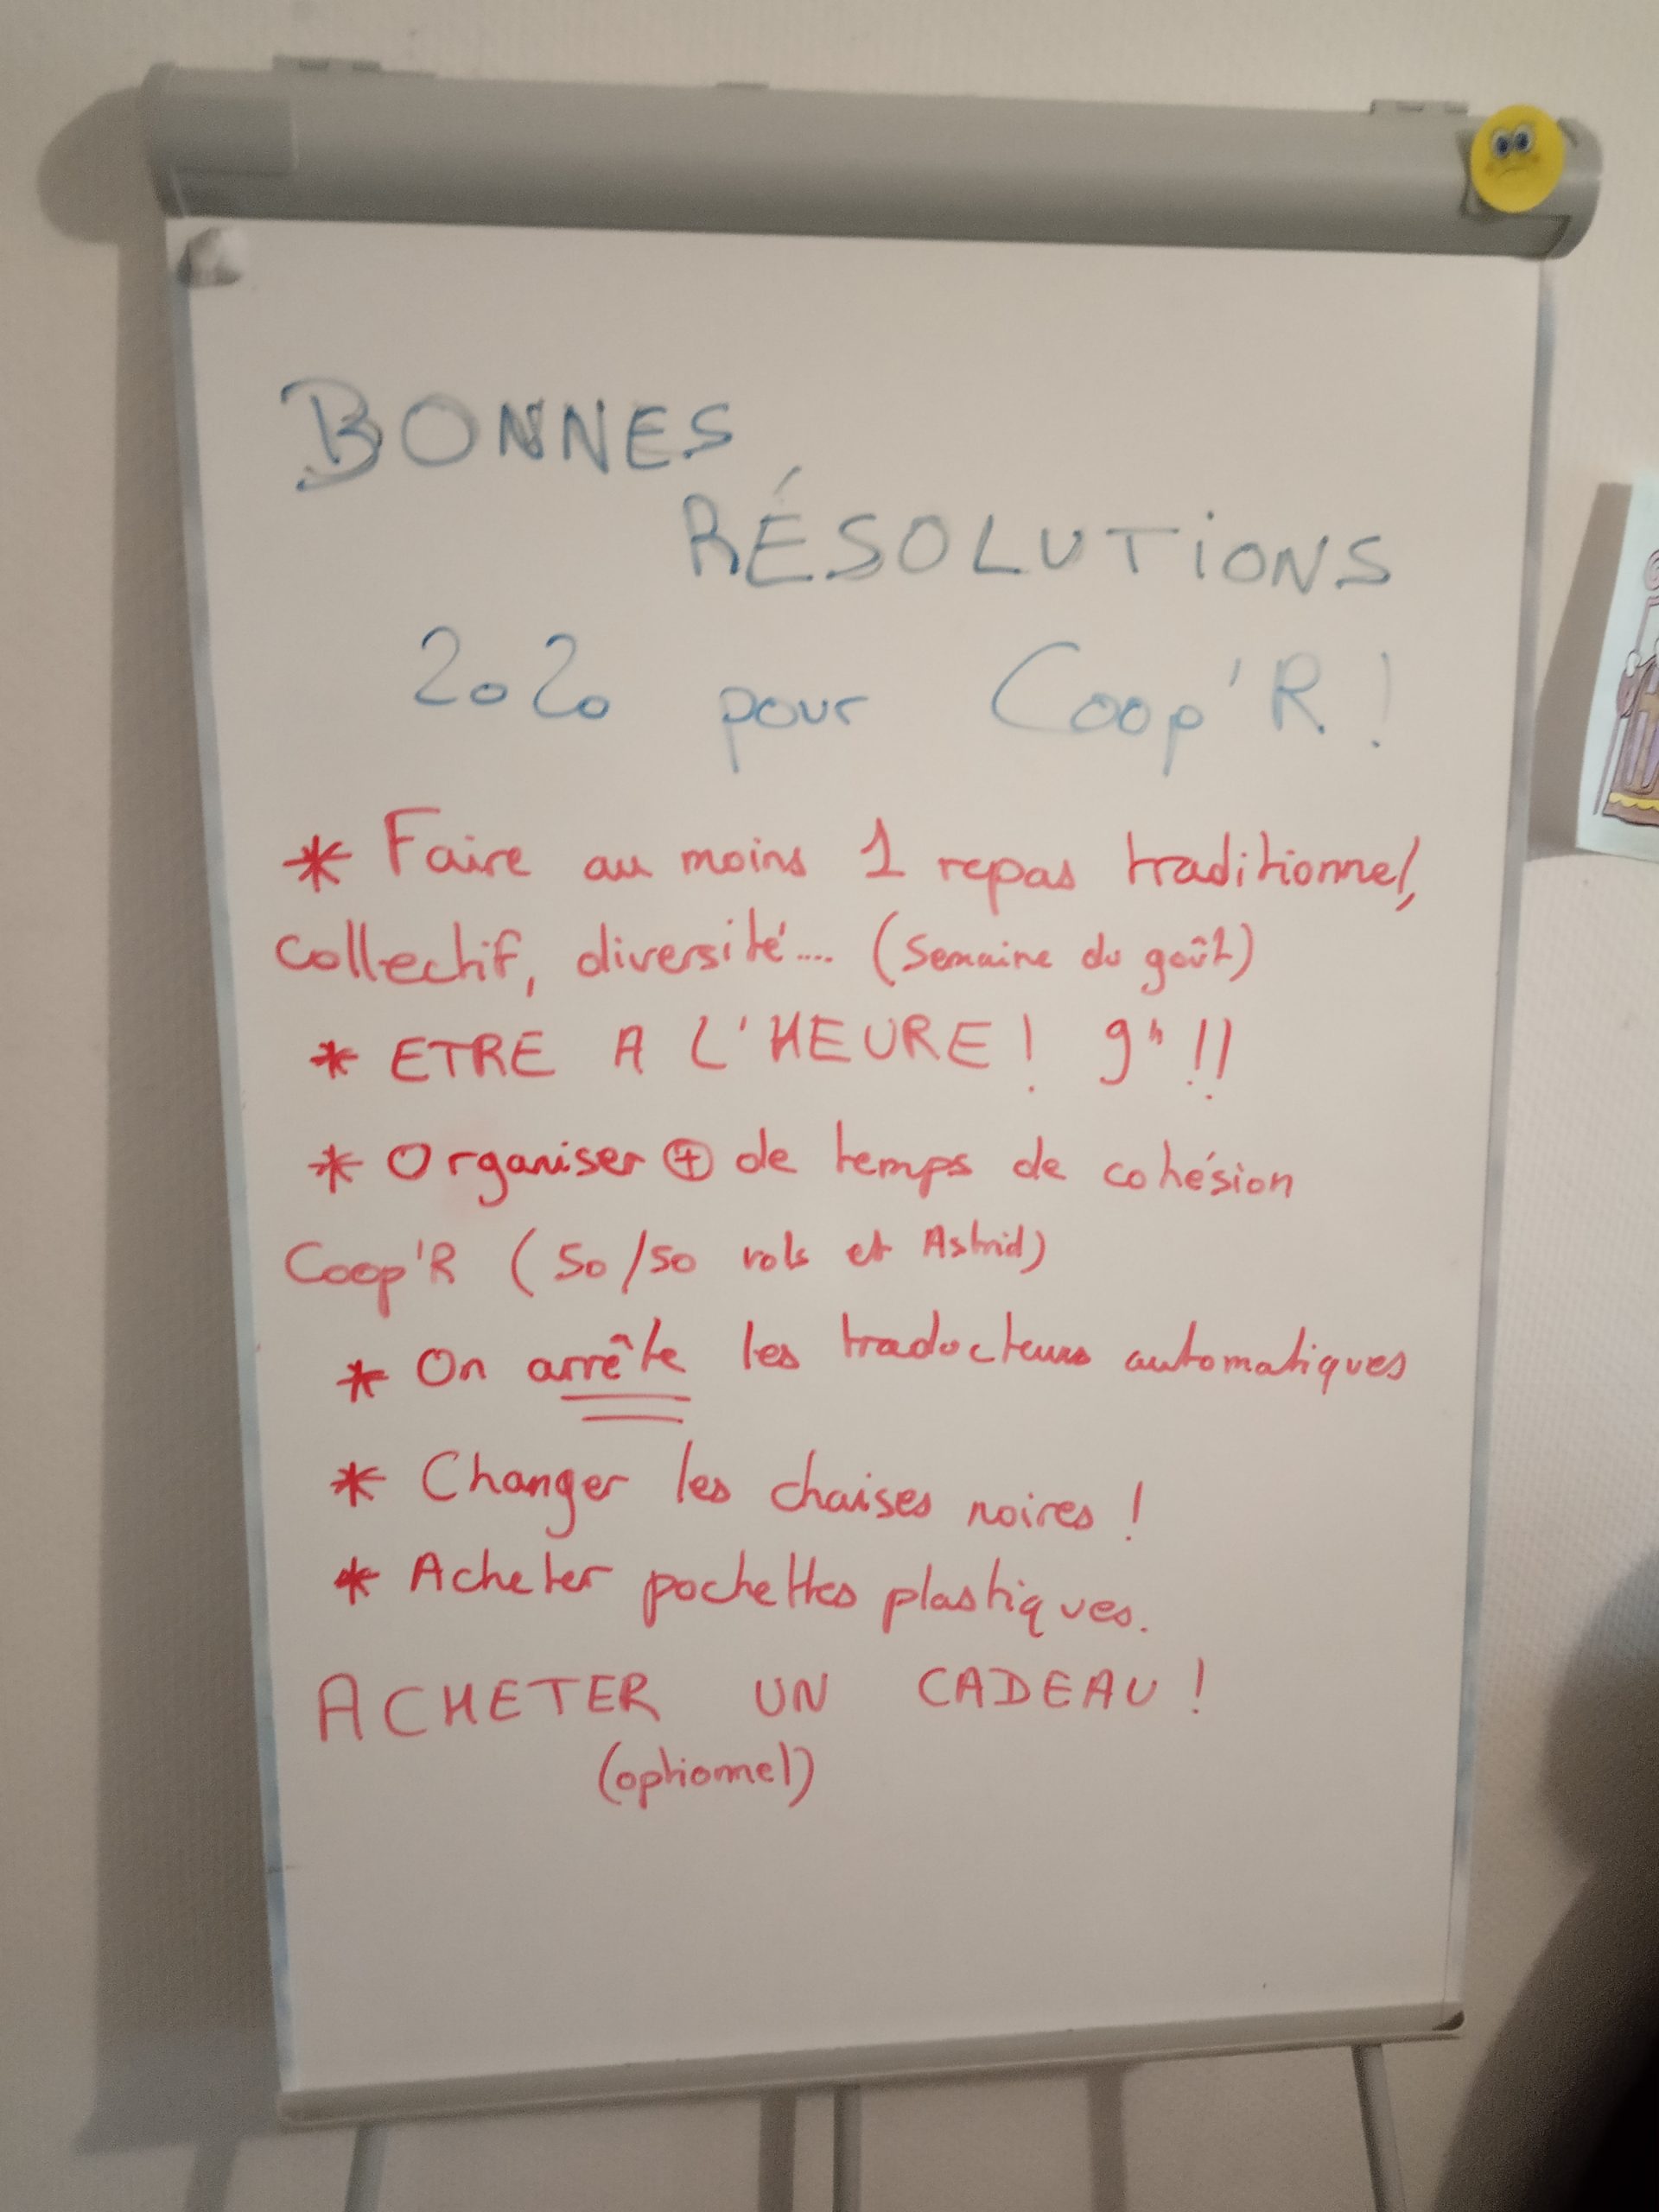 BONNES
RÉSOLUTIONS
2020 pour Coop'R !
* Faire au moins 1 repas traditionnel,
collectif, diversité.... (Semaine du goût)
* ETRE A L'HEURE ! 9h !!
* Organiser ⊕ de temps de cohésion
Coop'R (50/50 vols et Astrid)
* On arrête les traducteurs automatiques
* Changer les chaises noires !
* Acheter pochettes plastiques.
ACHETER UN CADEAU !
(optionnel)